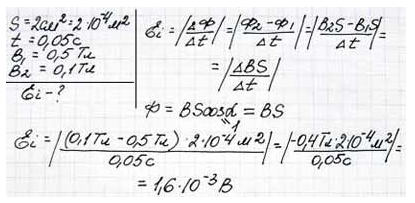 S = 2см² = 2·10⁻⁴м²
t = 0,05с
B₁ = 0,5Тл
B₂ = 0,1Тл
Ɛi - ?
Ɛi = |ΔФ/Δt| = |Ф₂-Ф₁/Δt| = |B₂S-B₁S/Δt| =
= |ΔBS/Δt|
Ф = BScosα = BS
1
Ɛi = |(0,1Тл - 0,5Тл)·2·10⁻⁴м²/0,05с| = |-0,4Тл·2·10⁻⁴м²/0,05с| =
= 1,6·10⁻³В